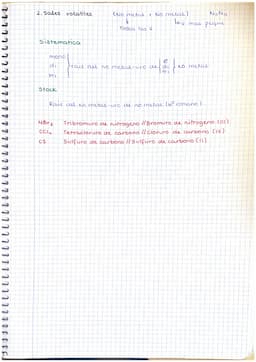 2. Sales volátiles (No metal + No metal) NxNy
Todos los
más
Sistemática
mono
di } raíz del no metal-uro de { di } no metal
tri
Stock
Raíz del no metal-uro de no metal (nº romano)
NBr3 Tribromuro de nitrógeno // Bromuro de nitrógeno (III)
CCl4 Tetracloruro de carbono // Cloruro de carbono (IV)
CS Sulfuro de carbono // Sulfuro de carbono (II)